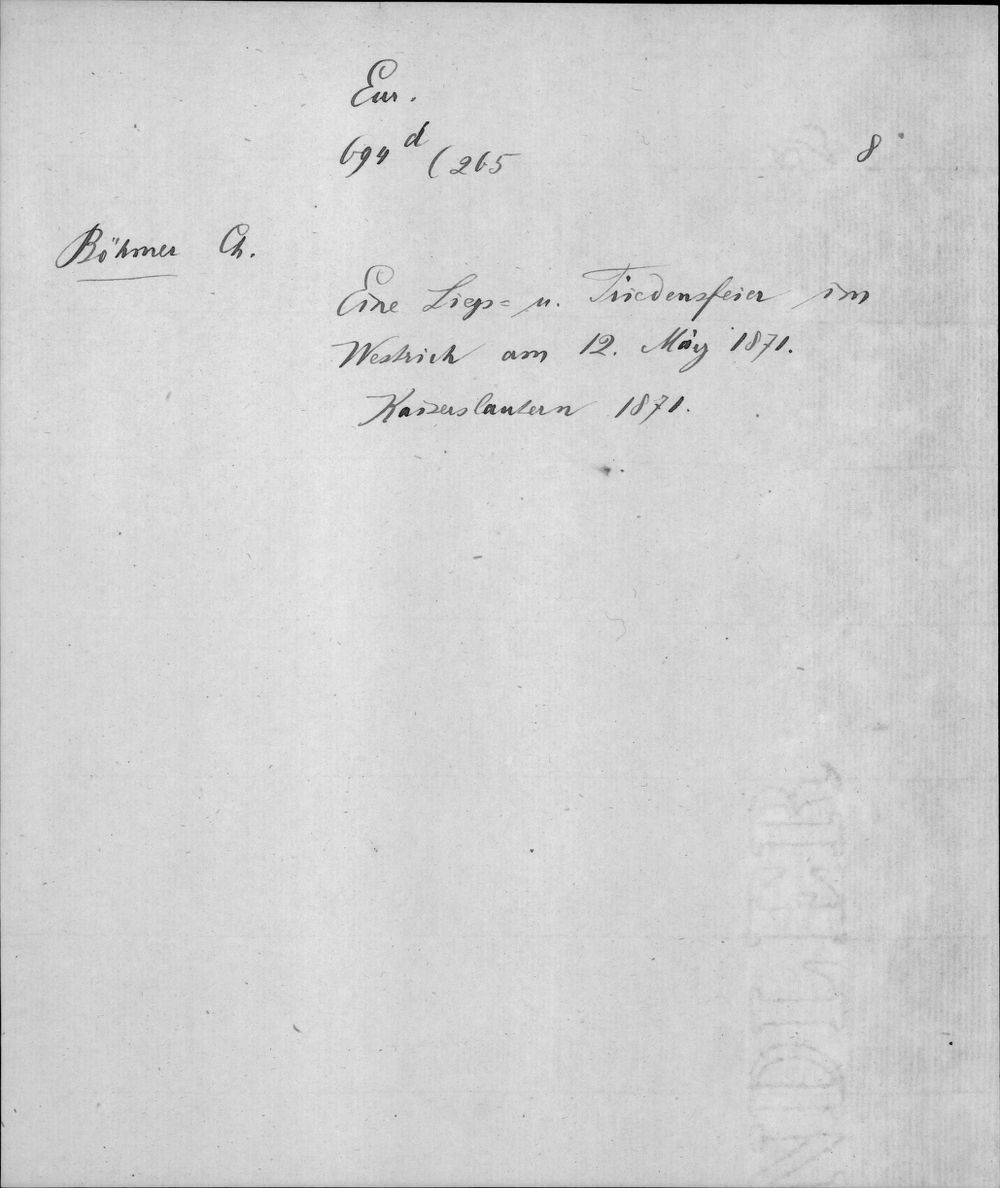 Eur.
694 d (265 8
Böhmer Ch.
Eine Siegs= u. Friedensfeier im
Westrich am 12. März 1871.
Kaiserslautern 1871.